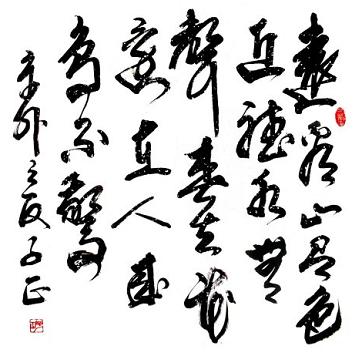 遠看山有色
近聽水無
聲春去花
還在人來
鳥不驚
辛卯之子正